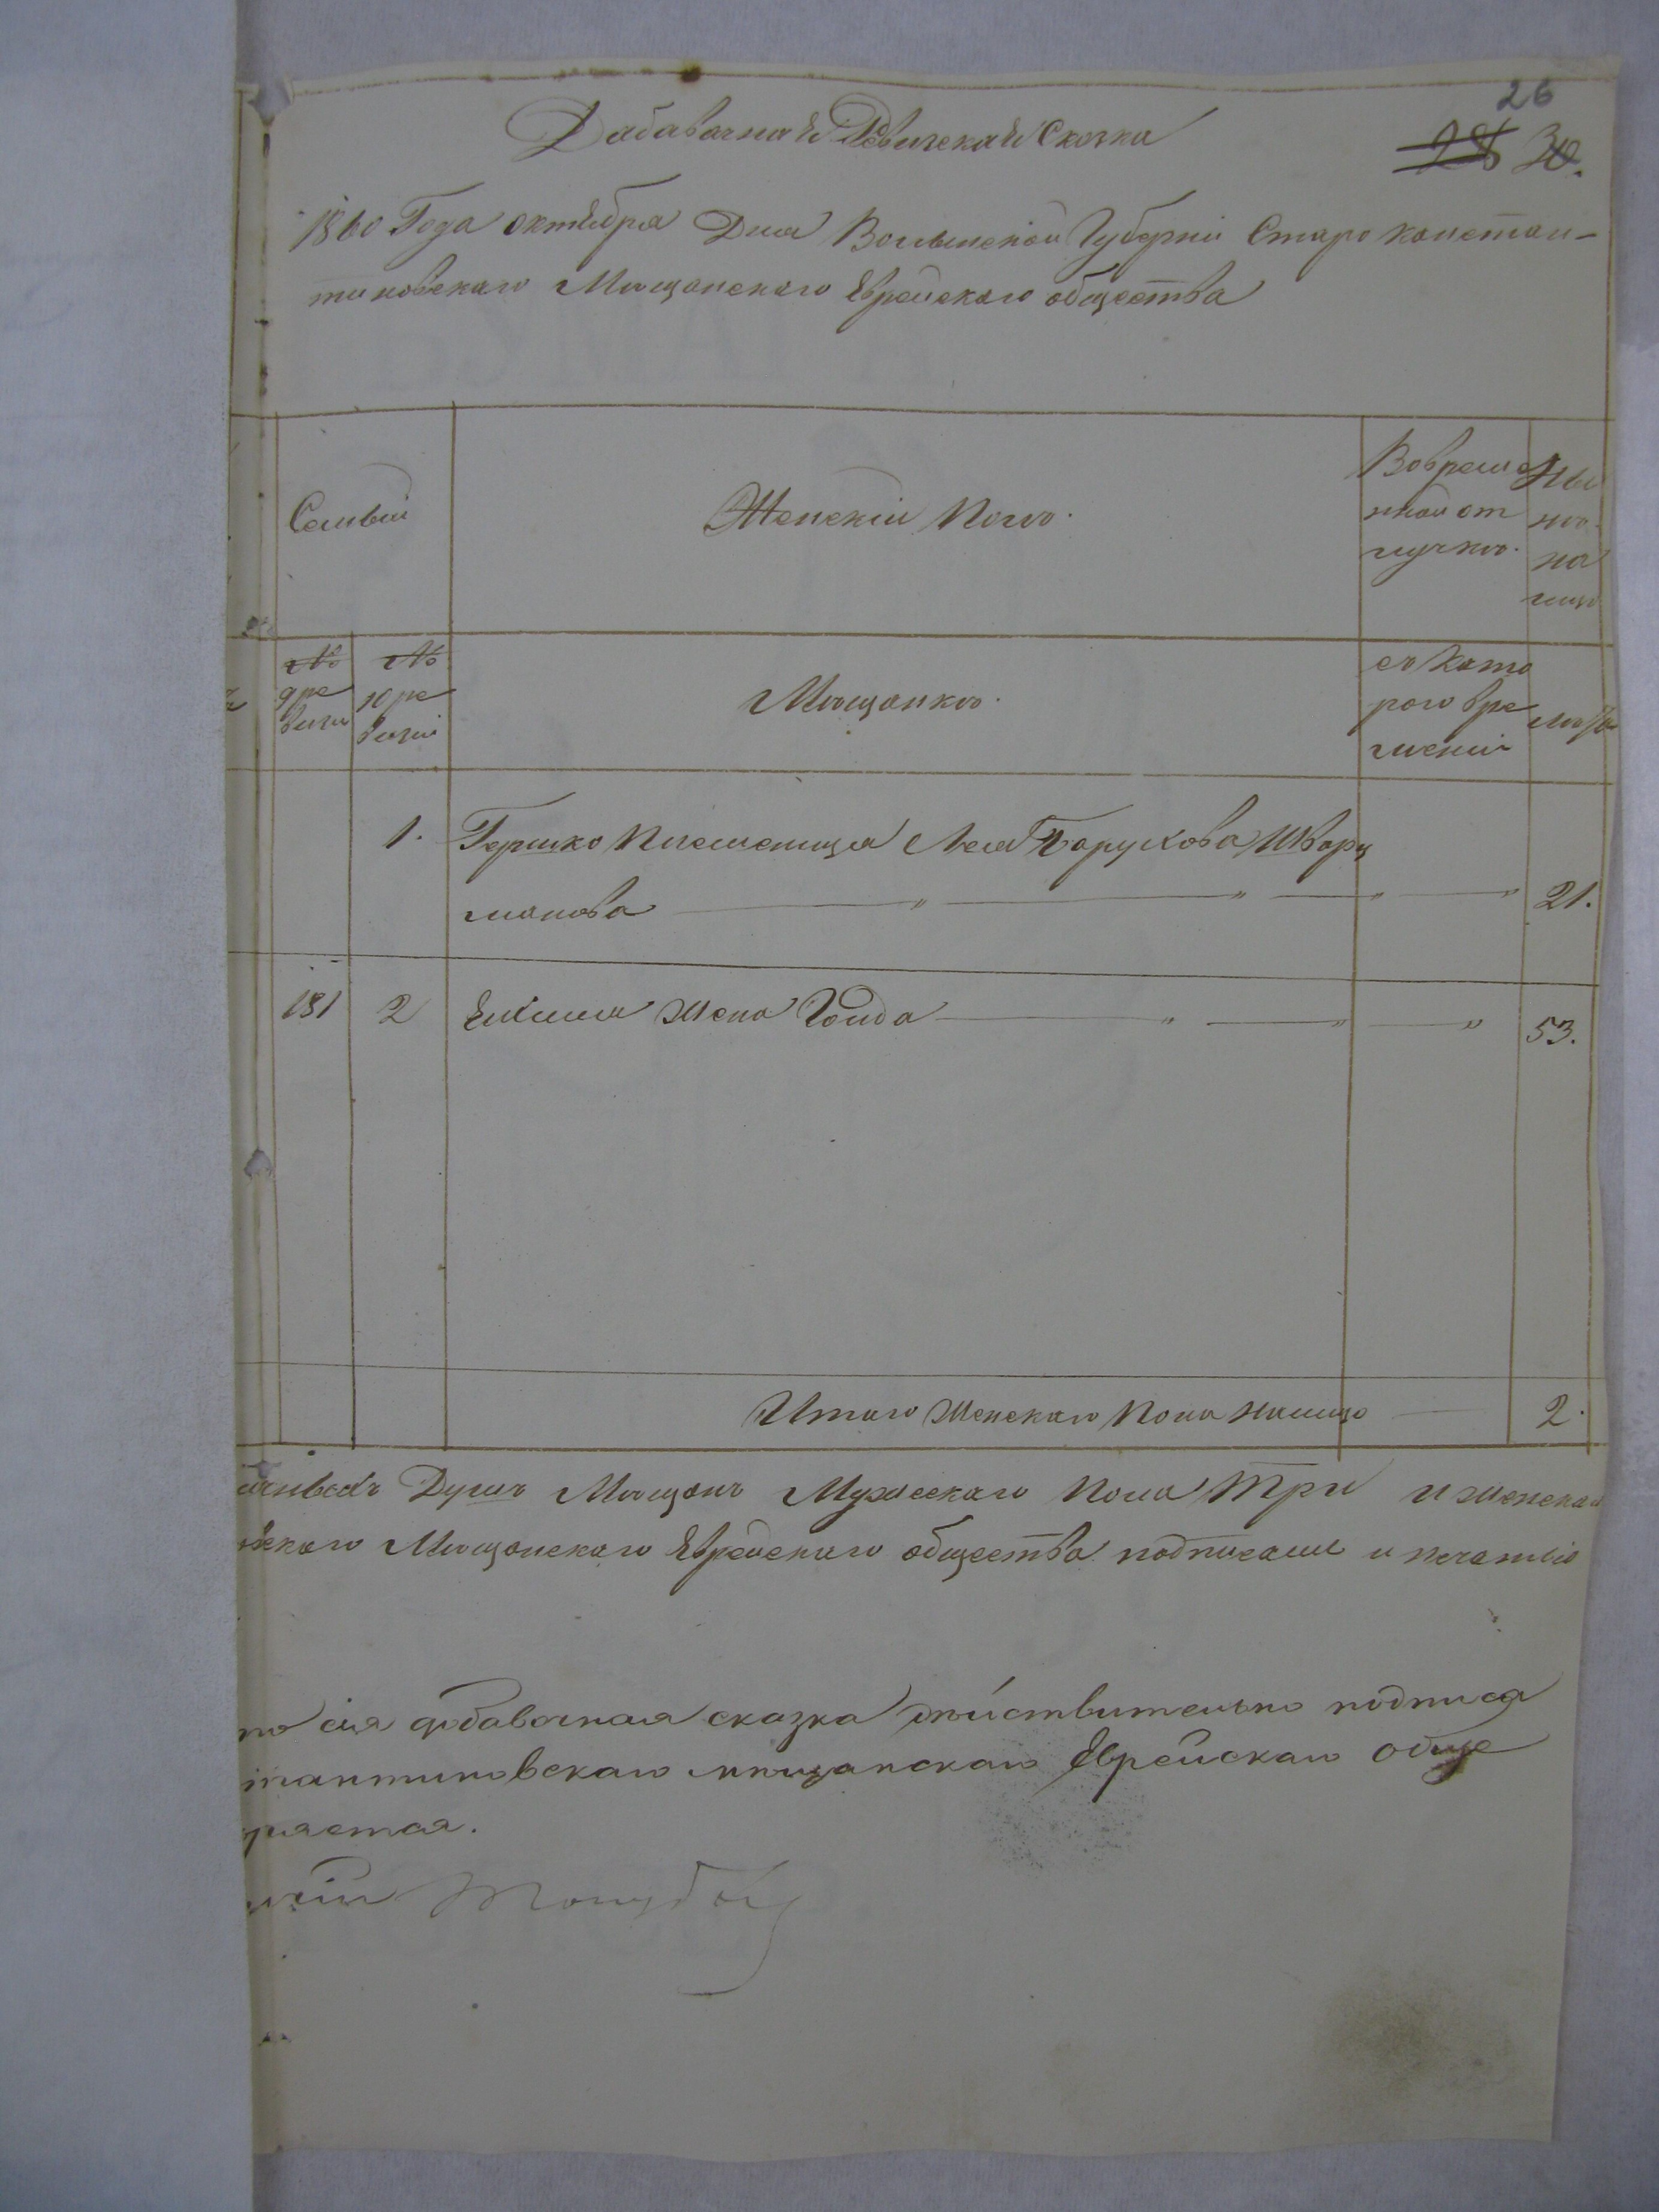 26
28 30.
Дабавочная Ревизская Сказка
1860 Года октября Дня Волынской Губерніи Старо констан-
тиновскаго Мѣщанскаго Еврейскаго общества
Семьи
Женскій Полъ.
Вовреме
нной от
лучкѣ.
Ны
нѣ
на
лицо
№
9 ре
визіи
№
10 ре
визіи
Мѣщанкѣ.
съ Кото
рого вре
мени
лѣта
1. Гершко Племеница Лея Борухова Шварц
манова 21.
181 2 жена Голда 53.
Итаго Женскаго Пола налицо 2.
Душъ Мѣщанъ Мужескаго Пола Три и женскаго
скаго Мѣщанскаго Еврейскаго общества подписали и печатью
то сія добавочная сказка дѣйствительно подписа
тантиновскаго мѣщанскаго Еврейскаго обще
ряется.